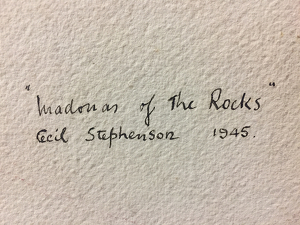 "Madonas of The Rocks"
Cecil Stephenson 1945.